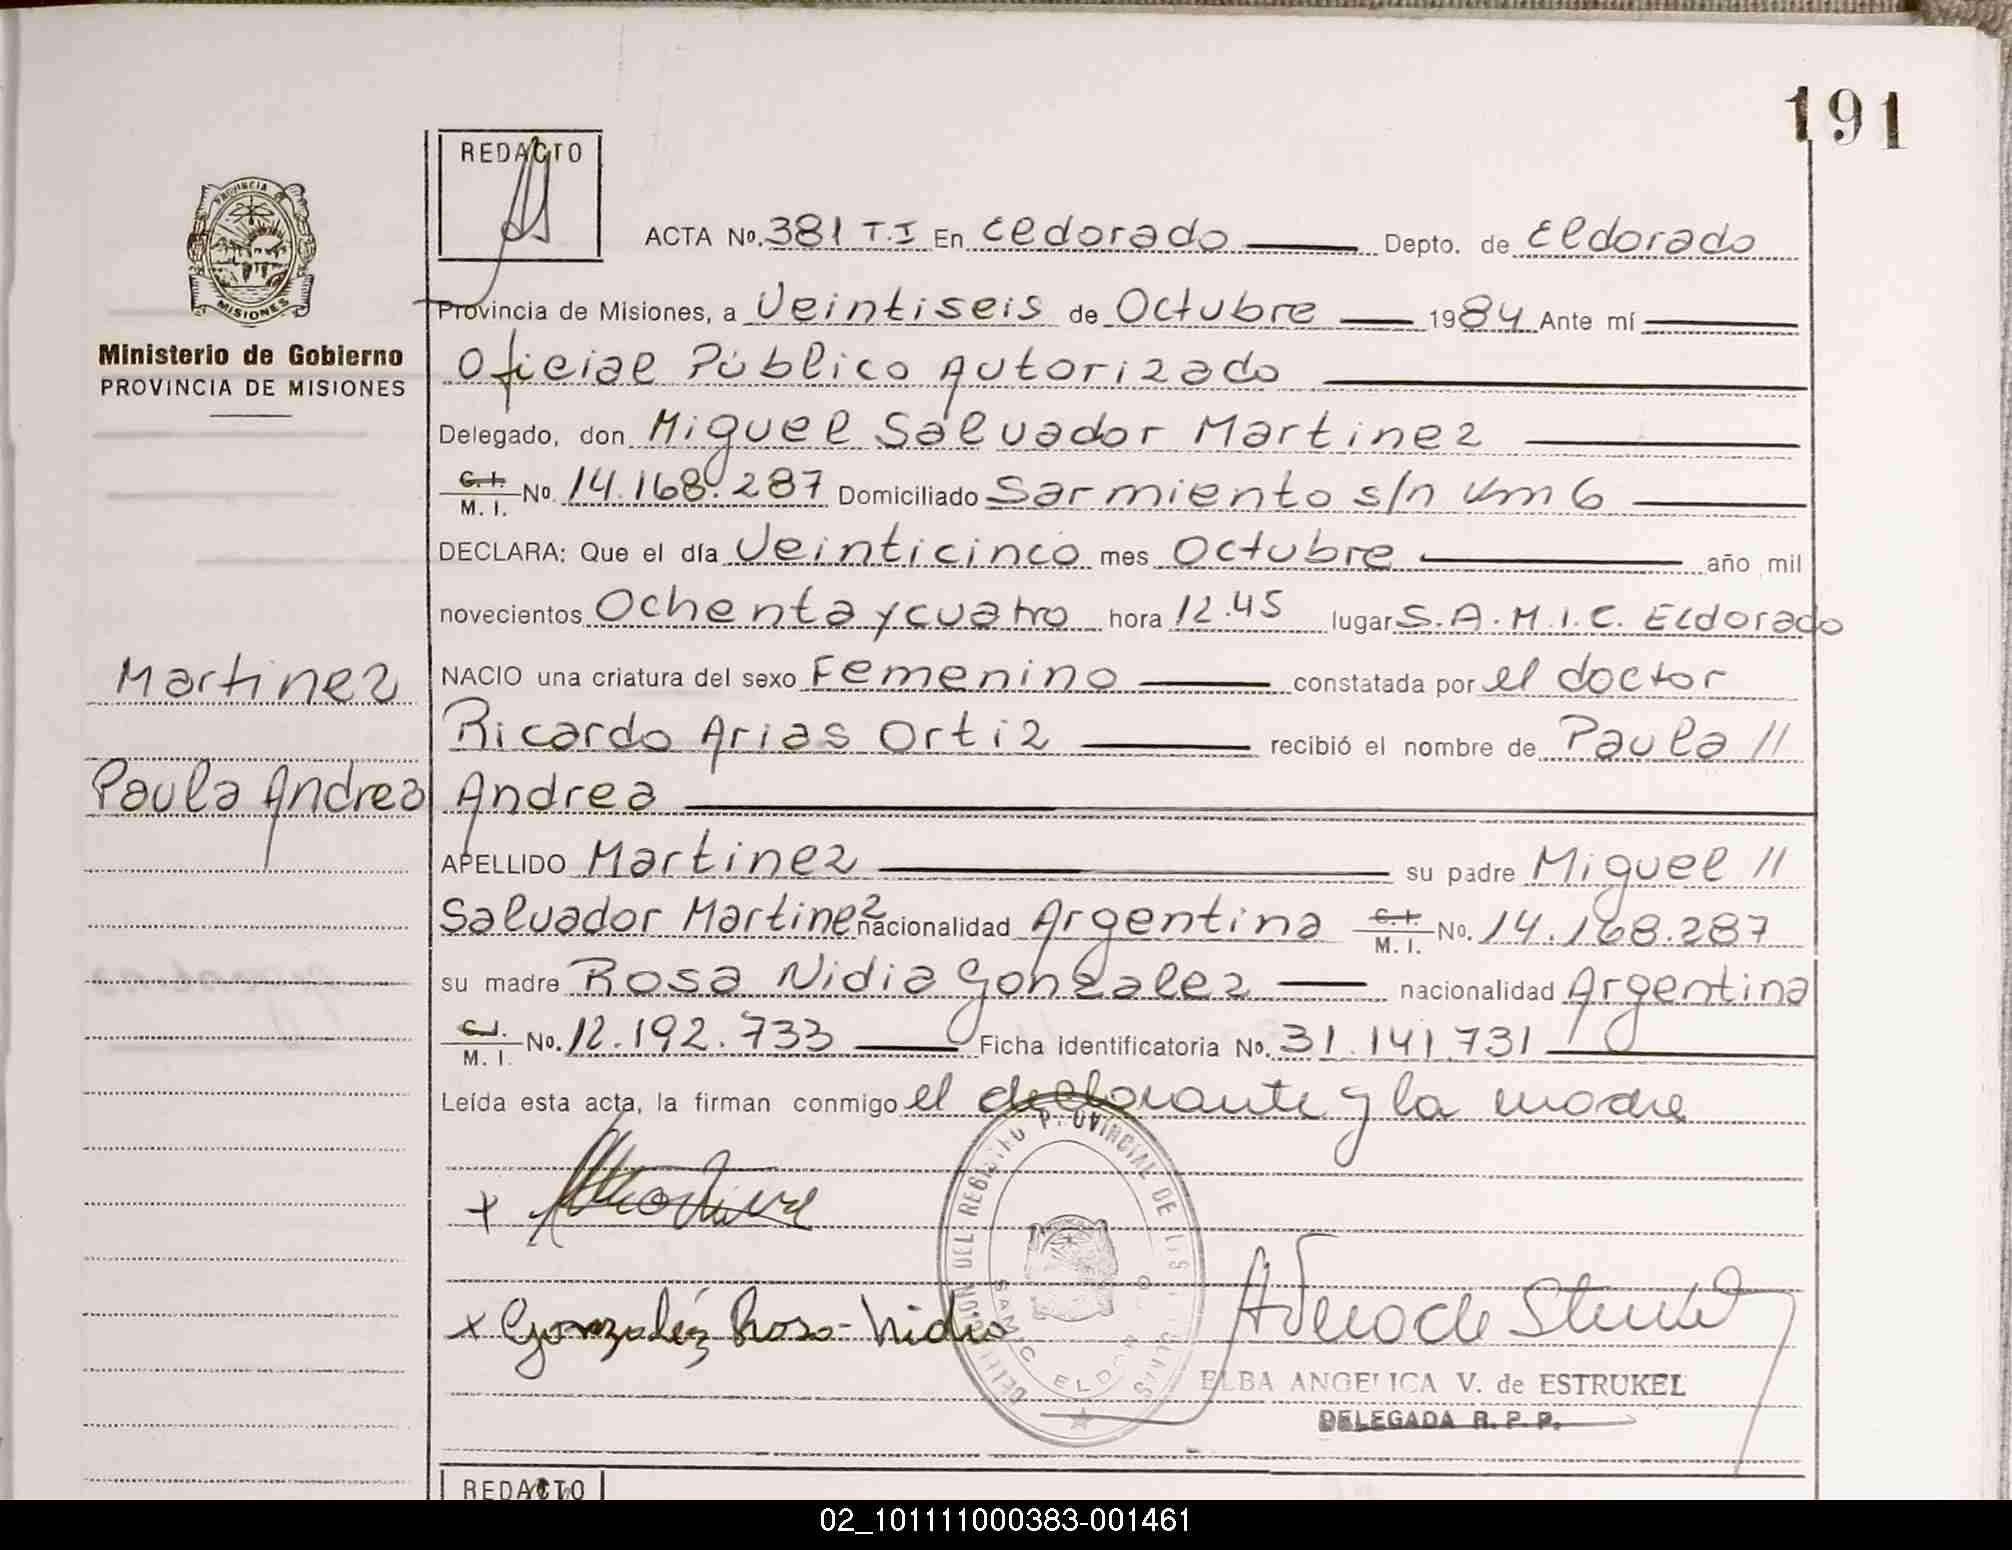 191
REDACTO
PROVINCIA DE
MISIONES
Ministerio de Gobierno
PROVINCIA DE MISIONES
ACTA No. 381 T.I En Eldorado Depto. de Eldorado
Provincia de Misiones, a Veintiseis de Octubre 1984 Ante mí
Oficial Público Autorizado
Delegado, don Miguel Salvador Martinez
C.I. M. I. No. 14.168.287 Domiciliado Sarmiento s/n Km 6
DECLARA: Que el día Veinticinco mes Octubre año mil
novecientos Ochenta y cuatro hora 12.45 lugar S.A.M.I.C. Eldorado
Martinez
NACIO una criatura del sexo Femenino constatada por el doctor
Ricardo Arias Ortiz recibió el nombre de Paula //
Paula Andrea
Andrea
APELLIDO Martinez su padre Miguel //
Salvador Martinez nacionalidad Argentina C.I. M. I. No. 14.168.287
su madre Rosa Nidia Gonzalez nacionalidad Argentina
C.I. M. I. No. 12.192.733 Ficha identificatoria No. 31.141.731
Leída esta acta, la firman conmigo el declarante y la madre
x
x Gonzaléz Rosa-Nidia
DELEGACION DEL REGISTRO PROVINCIAL DE LAS PERSONAS
SAMIC ELDORADO
ELBA ANGELICA V. de ESTRUKEL
DELEGADA R. P. P.
REDACTO
02_101111000383-001461